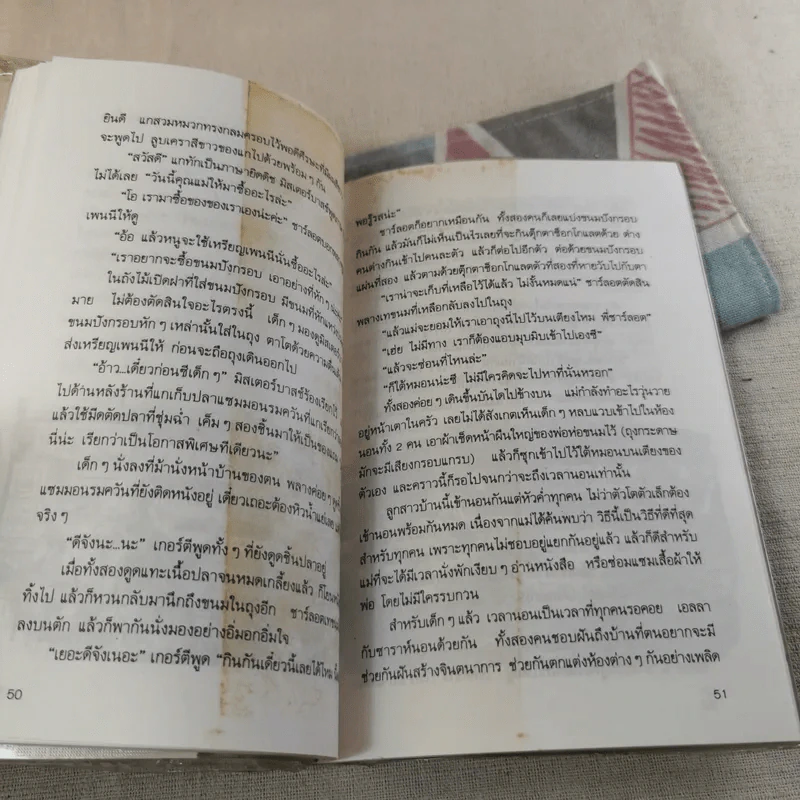 ยินดี แกสวมหมวกทรงกลมครอบไว้พอดีศีรษะที่มีผม
จะพูดไป ลูบเคราสีขาวของแกไปด้วยพร้อมๆ กัน
“สวัสดี” แกทักเป็นภาษายิดดิช มิสเตอร์บาสช์พูด
ไม่ได้เลย “วันนี้คุณแม่ให้มาซื้ออะไรล่ะ”
“โอ เรามาซื้อของของเราเองน่ะค่ะ” ชาร์ลอตบอก
เพนนีให้ดู
“อ้อ แล้วหนูจะใช้เหรียญเพนนีนั่นซื้ออะไรล่ะ”
“เราอยากจะซื้อขนมปังกรอบ เอาอย่างที่หักๆ
ในถังไม้เปิดฝาที่ใส่ขนมปังกรอบ มีขนมที่หัก
มาย ไม่ต้องตัดสินใจอะไรตรงนี้ เด็กๆ มองดูมิสเตอร์
ขนมปังกรอบหักๆ เหล่านั้นใส่ในถุง ตาโตด้วยความ
ส่งเหรียญเพนนีให้ ก่อนจะถือถุงเดินออกไป
“อ้าว...เดี๋ยวก่อนซีเด็กๆ” มิสเตอร์บาสช์ร้องเรียกไว้
ไปด้านหลังร้านที่แกเก็บปลาแซมมอนรมควันที่แกเรียกว่า
แล้วใช้มีดตัดปลาที่ชุ่มฉ่ำ เค็มๆ สองชิ้นมาให้เป็นของแถม
นี่น่ะ เรียกว่าเป็นโอกาสพิเศษทีเดียวนะ”
เด็กๆ นั่งลงที่ม้านั่งหน้าบ้านของตน พลางค่อยๆ
แซมมอนรมควันที่ยังติดหนังอยู่ เดี๋ยวเถอะต้องหิวน้ำแย่เลย
จริงๆ
“ดีจังนะ...นะ” เกอร์ตีพูดทั้งๆ ที่ยังดูดชิ้นปลาอยู่
เมื่อทั้งสองดูดแทะเนื้อปลาจนหมดเกลี้ยงแล้ว ก็โยน
ทิ้งไป แล้วก็หวนกลับมานึกถึงขนมในถุงอีก ชาร์ลอตเท
ลงบนตัก แล้วก็พากันนั่งมองอย่างอิ่มอกอิ่มใจ
“เยอะดีจังเนอะ” เกอร์ตีพูด “กินกันเดี๋ยวนี้เลยได้ไหม
50
พอรู้รสน่ะ”
ชาร์ลอตก็อยากเหมือนกัน ทั้งสองคนก็เลยแบ่งขนมปังกรอบ
กินกัน แล้วมันก็ไม่เห็นเป็นไรเลยที่จะกินตุ๊กตาช็อกโกแลตด้วย ต่าง
คนต่างกินเข้าไปคนละตัว แล้วก็ต่อไปอีกตัว ต่อด้วยขนมปังกรอบ
แผ่นที่สอง แล้วตามด้วยตุ๊กตาช็อกโกแลตตัวที่สองที่หายวับไปกับตา
“เราน่าจะเก็บที่เหลือไว้ได้แล้ว ไม่งั้นหมดแน่” ชาร์ลอตตัดสิน
พลางเทขนมที่เหลือกลับลงไปในถุง
“แล้วแม่จะยอมให้เราเอาถุงนี่ไปไว้บนเตียงไหม พี่ชาร์ลอต”
“เฮ่ย ไม่มีทาง เราก็ต้องแอบมุบมิบเข้าไปเองซี”
“แล้วจะซ่อนที่ไหนล่ะ”
“ก็ใต้หมอนน่ะซี ไม่มีใครคิดจะไปหาที่นั่นหรอก”
ทั้งสองค่อยๆ เดินขึ้นบันไดไปข้างบน แม่กำลังทำอะไรวุ่นวาย
อยู่หน้าเตาในครัว เลยไม่ได้สังเกตเห็นเด็กๆ หลบแวบเข้าไปในห้อง
นอนทั้ง 2 คน เอาผ้าเช็ดหน้าผืนใหญ่ของพ่อห่อขนมไว้ (ถุงกระดาษ
มักจะมีเสียงกรอบแกรบ) แล้วก็ซุกเข้าไปไว้ใต้หมอนบนเตียงของ
ตัวเอง และคราวนี้ก็รอไปจนกว่าจะถึงเวลานอนเท่านั้น
ลูกสาวบ้านนี้เข้านอนกันแต่หัวค่ำทุกคน ไม่ว่าตัวโตตัวเล็กต้อง
เข้านอนพร้อมกันหมด เนื่องจากแม่ได้ค้นพบว่า วิธีนี้เป็นวิธีที่ดีที่สุด
สำหรับทุกคน เพราะทุกคนไม่ชอบอยู่แยกกันอยู่แล้ว แล้วก็ดีสำหรับ
แม่ที่จะได้มีเวลานั่งพักเงียบๆ อ่านหนังสือ หรือซ่อมแซมเสื้อผ้าให้
พ่อ โดยไม่มีใครรบกวน
สำหรับเด็กๆ แล้ว เวลานอนเป็นเวลาที่ทุกคนรอคอย เอลลา
กับซาราห์นอนด้วยกัน ทั้งสองคนชอบฝันถึงบ้านที่ตนอยากจะมี
ช่วยกันฝันสร้างจินตนาการ ช่วยกันตกแต่งห้องต่างๆ กันอย่างเพลิด
51